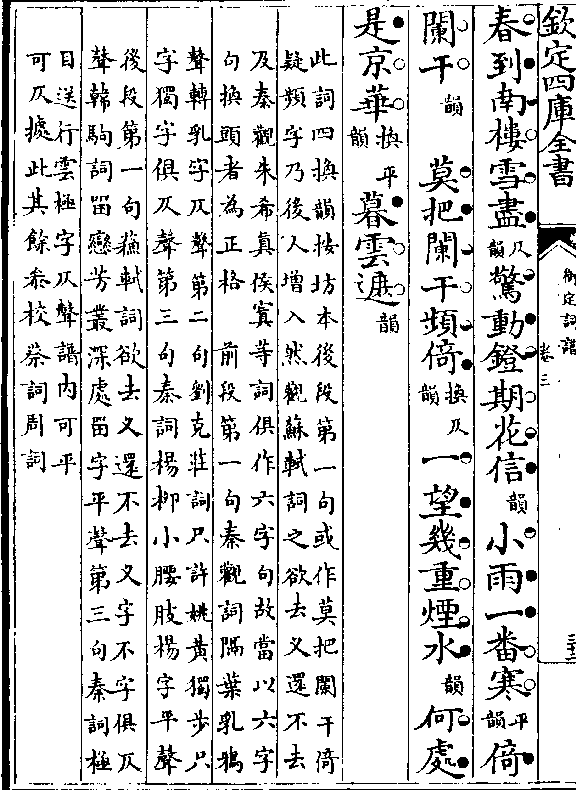 欽定四庫全書
御定詞譜
卷三
春到南樓雪盡仄韻驚動鐙期花信韻小雨一番寒平韻倚
闌干韻 莫把闌干頻倚換仄韻一望幾重煙水韻何處
是京華換平韻暮雲遮韻
此詞四換韻按坊本後段第一句或作莫把闌干倚
疑頻字乃後人增入然觀蘇軾詞之欲去又還不去
及秦觀朱希真侯寘等詞俱作六字句故當以六字
句換頭者為正格 前段第一句秦觀詞隔葉乳鴉
聲轉乳字仄聲第二句劉克莊詞只許姚黃獨步只
字獨字俱仄聲第三句秦詞楊柳小腰肢楊字平聲
後段第一句蘇軾詞欲去又還不去又字不字俱仄
聲韓駒詞留戀芳叢深處留字平聲第三句秦詞極
目送行雲極字仄聲譜內可平
可仄據此其餘參校蔡詞周詞